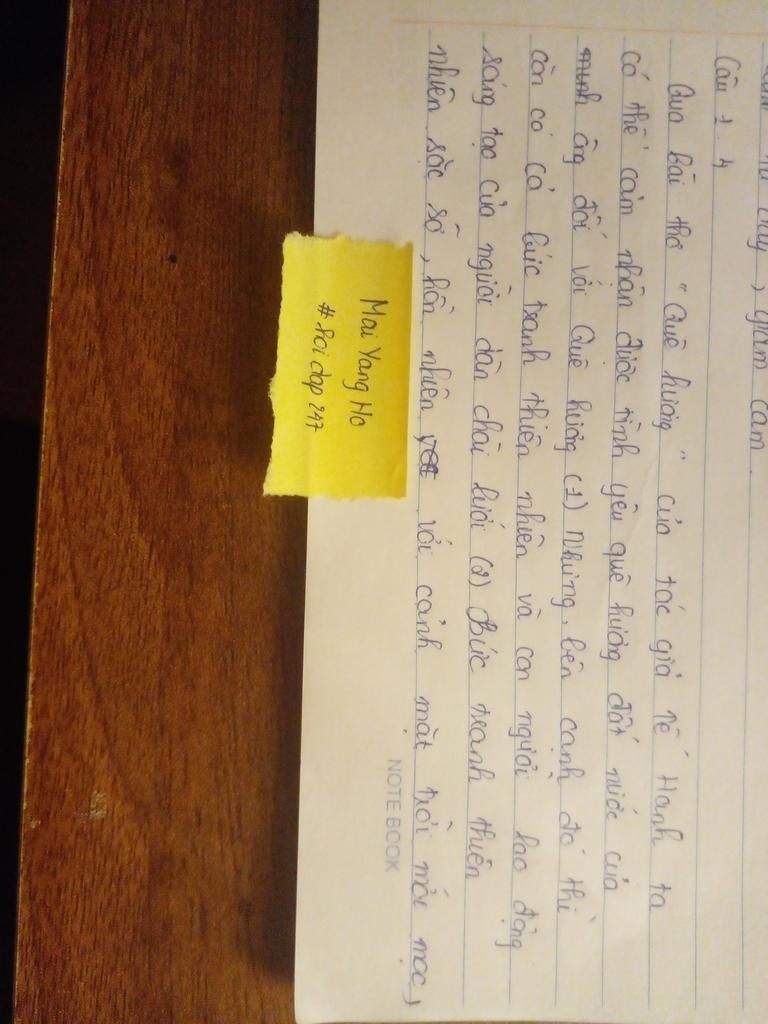 giảm cam.
Câu 1.4
Qua bài thơ " Quê hương " của tác giả Tế Hanh ta
có thể cảm nhận được tình yêu quê hương đất nước của
ông đối với Quê hương (1) Nhưng, bên cạnh đó thì
còn có cả bức tranh thiên nhiên và con người lao động
sáng tạo của người dân chài lưới (2) Bức tranh thiên
nhiên sặc sỡ, hồn nhiên với cảnh mặt trời mới mọc,
Mai Vang Ho
# hoi dap 247
NOTE BOOK